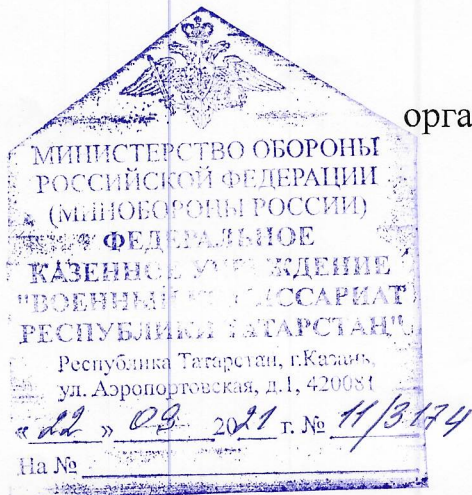 орга
МИНИСТЕРСТВО ОБОРОНЫ
РОССИЙСКОЙ ФЕДЕРАЦИИ
(МИНОБОРОНЫ РОССИИ)
ФЕДЕРАЛЬНОЕ
КАЗЕННОЕ УЧРЕЖДЕНИЕ
"ВОЕННЫЙ КОМИССАРИАТ
РЕСПУБЛИКИ ТАТАРСТАН"
Республика Татарстан, г.Казань,
ул. Аэропортовская, д.1, 420081
« 22 » 09 2021 г. № 11/3174
На №